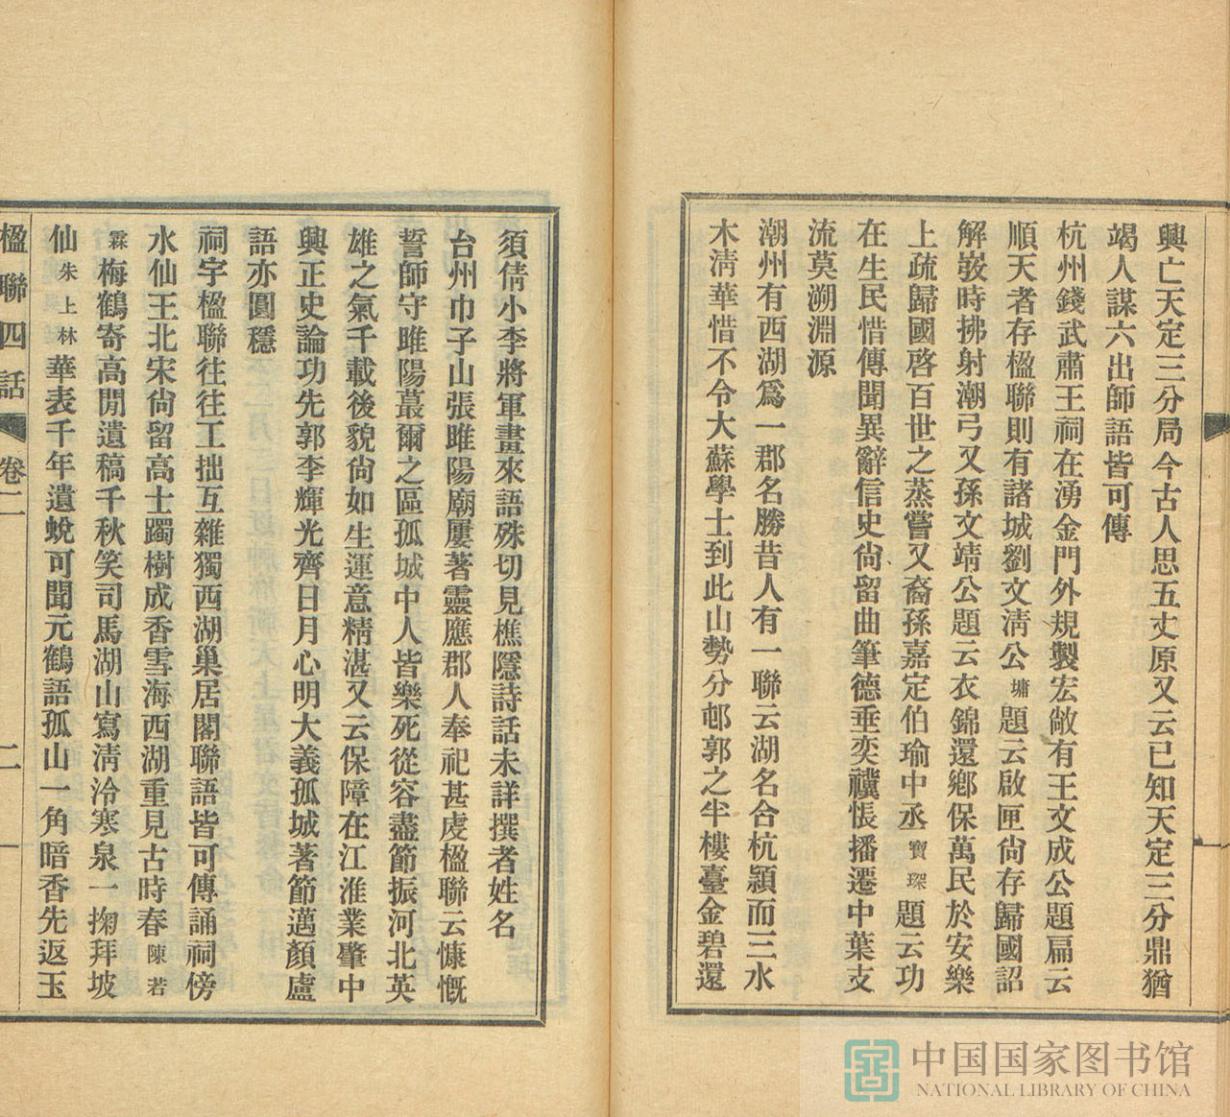 興亡天定三分局今古人思五丈原又云已知天定三分鼎猶
竭人謀六出師語皆可傳
杭州錢武肅王祠在湧金門外規製宏敞有王文成公題扁云
順天者存楹聯則有諸城劉文淸公墉題云啟匣尙存歸國詔
解弢時拂射潮弓又孫文靖公題云衣錦還鄉保萬民於安樂
上疏歸國啓百世之蒸嘗又裔孫嘉定伯瑜中丞寶琛題云功
在生民惜傳聞異辭信史尙留曲筆德垂奕禩悵播遷中葉支
流莫溯淵源
潮州有西湖爲一郡名勝昔人有一聯云湖名合杭潁而三水
木淸華惜不令大蘇學士到此山勢分郕郭之半樓臺金碧還
須倩小李將軍畫來語殊切見樵隱詩話未詳撰者姓名
台州巾子山張睢陽廟屢著靈應郡人奉祀甚虔楹聯云慷慨
誓師守睢陽蕞爾之區孤城中人皆樂死從容盡節振河北英
雄之氣千載後貌尙如生運意精湛又云保障在江淮業肇中
興正史論功先郭李輝光齊日月心明大義孤城著節邁顏盧
語亦圓穩
祠宇楹聯往往工拙互雜獨西湖巢居閣聯語皆可傳誦祠傍
水仙王北宋尙留高士躅樹成香雪海西湖重見古時春陳若
霖梅鶴寄高閒遺稿千秋笑司馬湖山寫淸泠寒泉一掬拜坡
仙朱上林華表千年遺蛻可聞元鶴語孤山一角暗香先返玉
楹聯四話
卷二
二
中国国家图书馆
NATIONAL LIBRARY OF CHINA